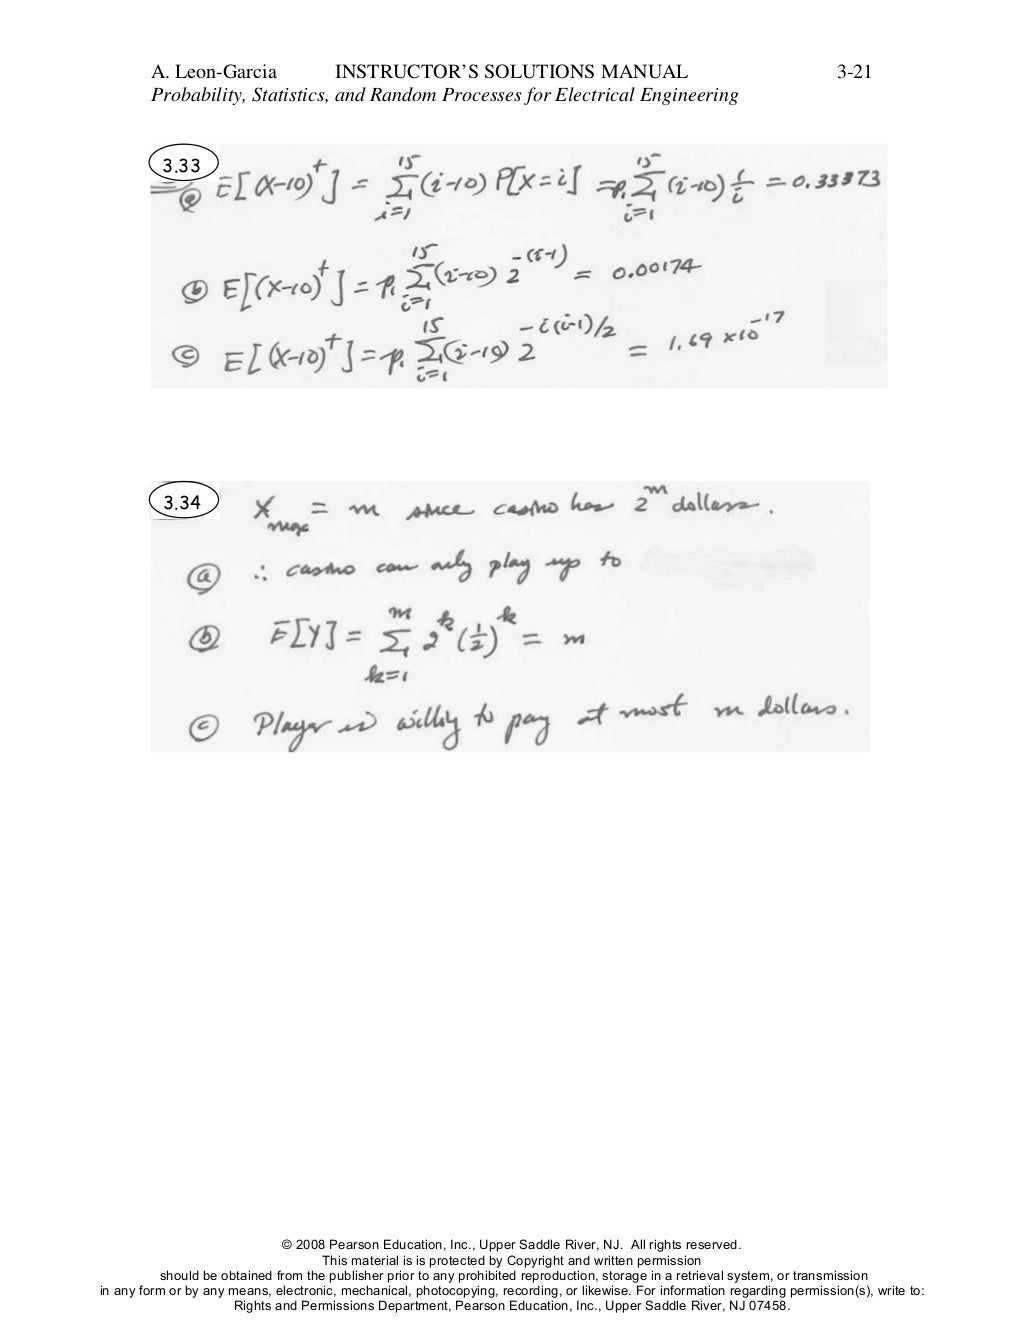 A. Leon-Garcia INSTRUCTOR'S SOLUTIONS MANUAL 3-21
Probability, Statistics, and Random Processes for Electrical Engineering
3.33
(a) E[(X-10)⁺] = Σ_{i=1}^{15} (i-10) P[X=i] = p₁ Σ_{i=1}^{15} (i-10) 1/i = 0.33373
(b) E[(X-10)⁺] = p₁ Σ_{i=1}^{15} (i-10) 2^{-(i-1)} = 0.00174
(c) E[(X-10)⁺] = p₁ Σ_{i=1}^{15} (i-10) 2^{-i(i-1)/2} = 1.69 x10^{-17}
3.34
X_max = m since casino has 2^m dollars.
(a) ∴ casino can only play up to
(b) E[Y] = Σ_{k=1}^{m} 2^k (1/2)^k = m
(c) Player is willing to pay at most m dollars.
© 2008 Pearson Education, Inc., Upper Saddle River, NJ. All rights reserved.
This material is is protected by Copyright and written permission
should be obtained from the publisher prior to any prohibited reproduction, storage in a retrieval system, or transmission
in any form or by any means, electronic, mechanical, photocopying, recording, or likewise. For information regarding permission(s), write to:
Rights and Permissions Department, Pearson Education, Inc., Upper Saddle River, NJ 07458.